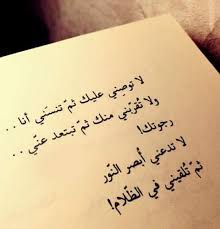 لا توصني عليك ثمّ تنسَني أنا ..
ولا تُقرّبني منك ثمّ تبتعد عنّي ..
رجوتك!
لا تدعني أُبصر النّور
ثمّ تُلقيني في الظّلام!